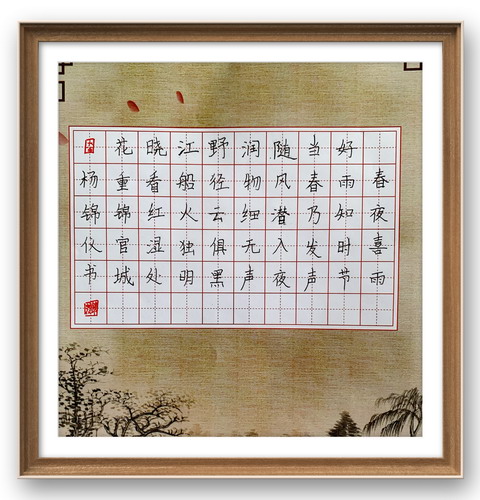 春夜喜雨
好雨知时节
当春乃发声
随风潜入夜
润物细无声
野径云俱黑
江船火独明
晓看红湿处
花重锦官城
杨锦仪书